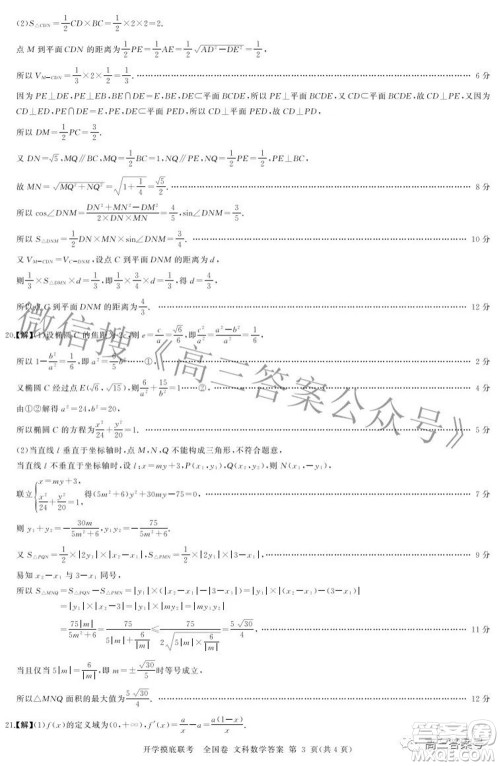 (2)S△CDN=1/2 CD×BC=1/2×2×2=2.
点 M 到平面 CDN 的距离为 1/2 PE=1/2 AE=1/2 √(AD²-DE²)=1/2,
所以 V_{M-CDN}=1/3×2×1/2=1/3. 6 分
因为 PE⊥DE,PE⊥EB,BE∩DE=E,BE,DE⊂平面 BCDE,所以 PE⊥平面 BCDE,又 CD⊂平面 BCDE,故 PE⊥CD,又因为
CD⊥ED,PE∩DE=E,PE,DE⊂平面 PED,所以 CD⊥平面 PED,故 CD⊥PD,
所以 DM=1/2 PC=3/2.
又 DN=√5,MQ∥BC,MQ=1/2 BC=1,NQ∥PE,NQ=1/2 PE=1/2,PE⊥BC,
故 MN=√(MQ²+NQ²)=√(1+1/4)=√5/2 8 分
所以 cos∠DNM=(DN²+MN²-DM²)/(2×DN×MN)=4/5,sin∠DNM=3/5.
所以 S△DNM=1/2 DN×MN×sin∠DNM=3/4. 10 分
又 V_{M-CDN}=V_{C-DNM},设点 C 到平面 DNM 的距离为 d,
则 1/3×S△DMN×d=1/3,即 1/3×3/4×d=1/3,
所以 C 到平面 DNM 的距离为 4/3. 12 分
20.【解】(1)设椭圆 C 的焦距为 2c,则 e=c/a=√6/6,即 c²/a²=(a²-b²)/a²=1/6.
所以 1-b²/a²=1/6,即 b²/a²=5/6 ①. 2 分
又椭圆 C 经过点 E(√6,√15),则 6/a²+15/b²=1 ②. 4 分
由①②解得 a²=24,b²=20.
所以椭圆 C 的方程为 x²/24+y²/20=1. 5 分
(2)当直线 l 垂直于坐标轴时,点 M,N,Q 不能构成三角形,不符合题意,
当直线 l 不垂直于坐标轴时,设 l:x=my+3,P(x₁,y₁),Q(x₂,y₂),则 N(x₁,-y₁),
联立{x=my+3, x²/24+y²/20=1, 得(5m²+6)y²+30my-75=0, 7 分
则 y₁+y₂=-30m/(5m²+6),y₁y₂=-75/(5m²+6).
又 S△PQN=1/2×|2y₁|×|x₂-x₁|,S△PMN=1/2×|2y₁|×|3-x₁|. 9 分
易知 x₂-x₁ 与 3-x₁ 同号,
所以 S△MNQ=S△PQN-S△PMN=|y₁|×(|x₂-x₁|-|3-x₁|)=|y₁|×|(x₂-x₁)-(3-x₁)|
=|y₁|×|x₂-3|=|y₁|×|my₂|=|my₁y₂|
=75|m|/(5m²+6)=75/(5|m|+6/|m|)≤75/(2√(5|m|×6/|m|))=5√30/4. 11 分
当且仅当 5|m|=6/|m|,即 m=±√30/5 时等号成立,
所以△MNQ 面积的最大值为 5√30/4. 12 分
21.【解】(1)f(x)的定义域为(0,+∞),f′(x)=a/x-a=a(1-x)/x.
开学摸底联考 全国卷 文科数学答案 第 3 页(共 4 页)
微信搜《高三答案公众号》
高三答案号